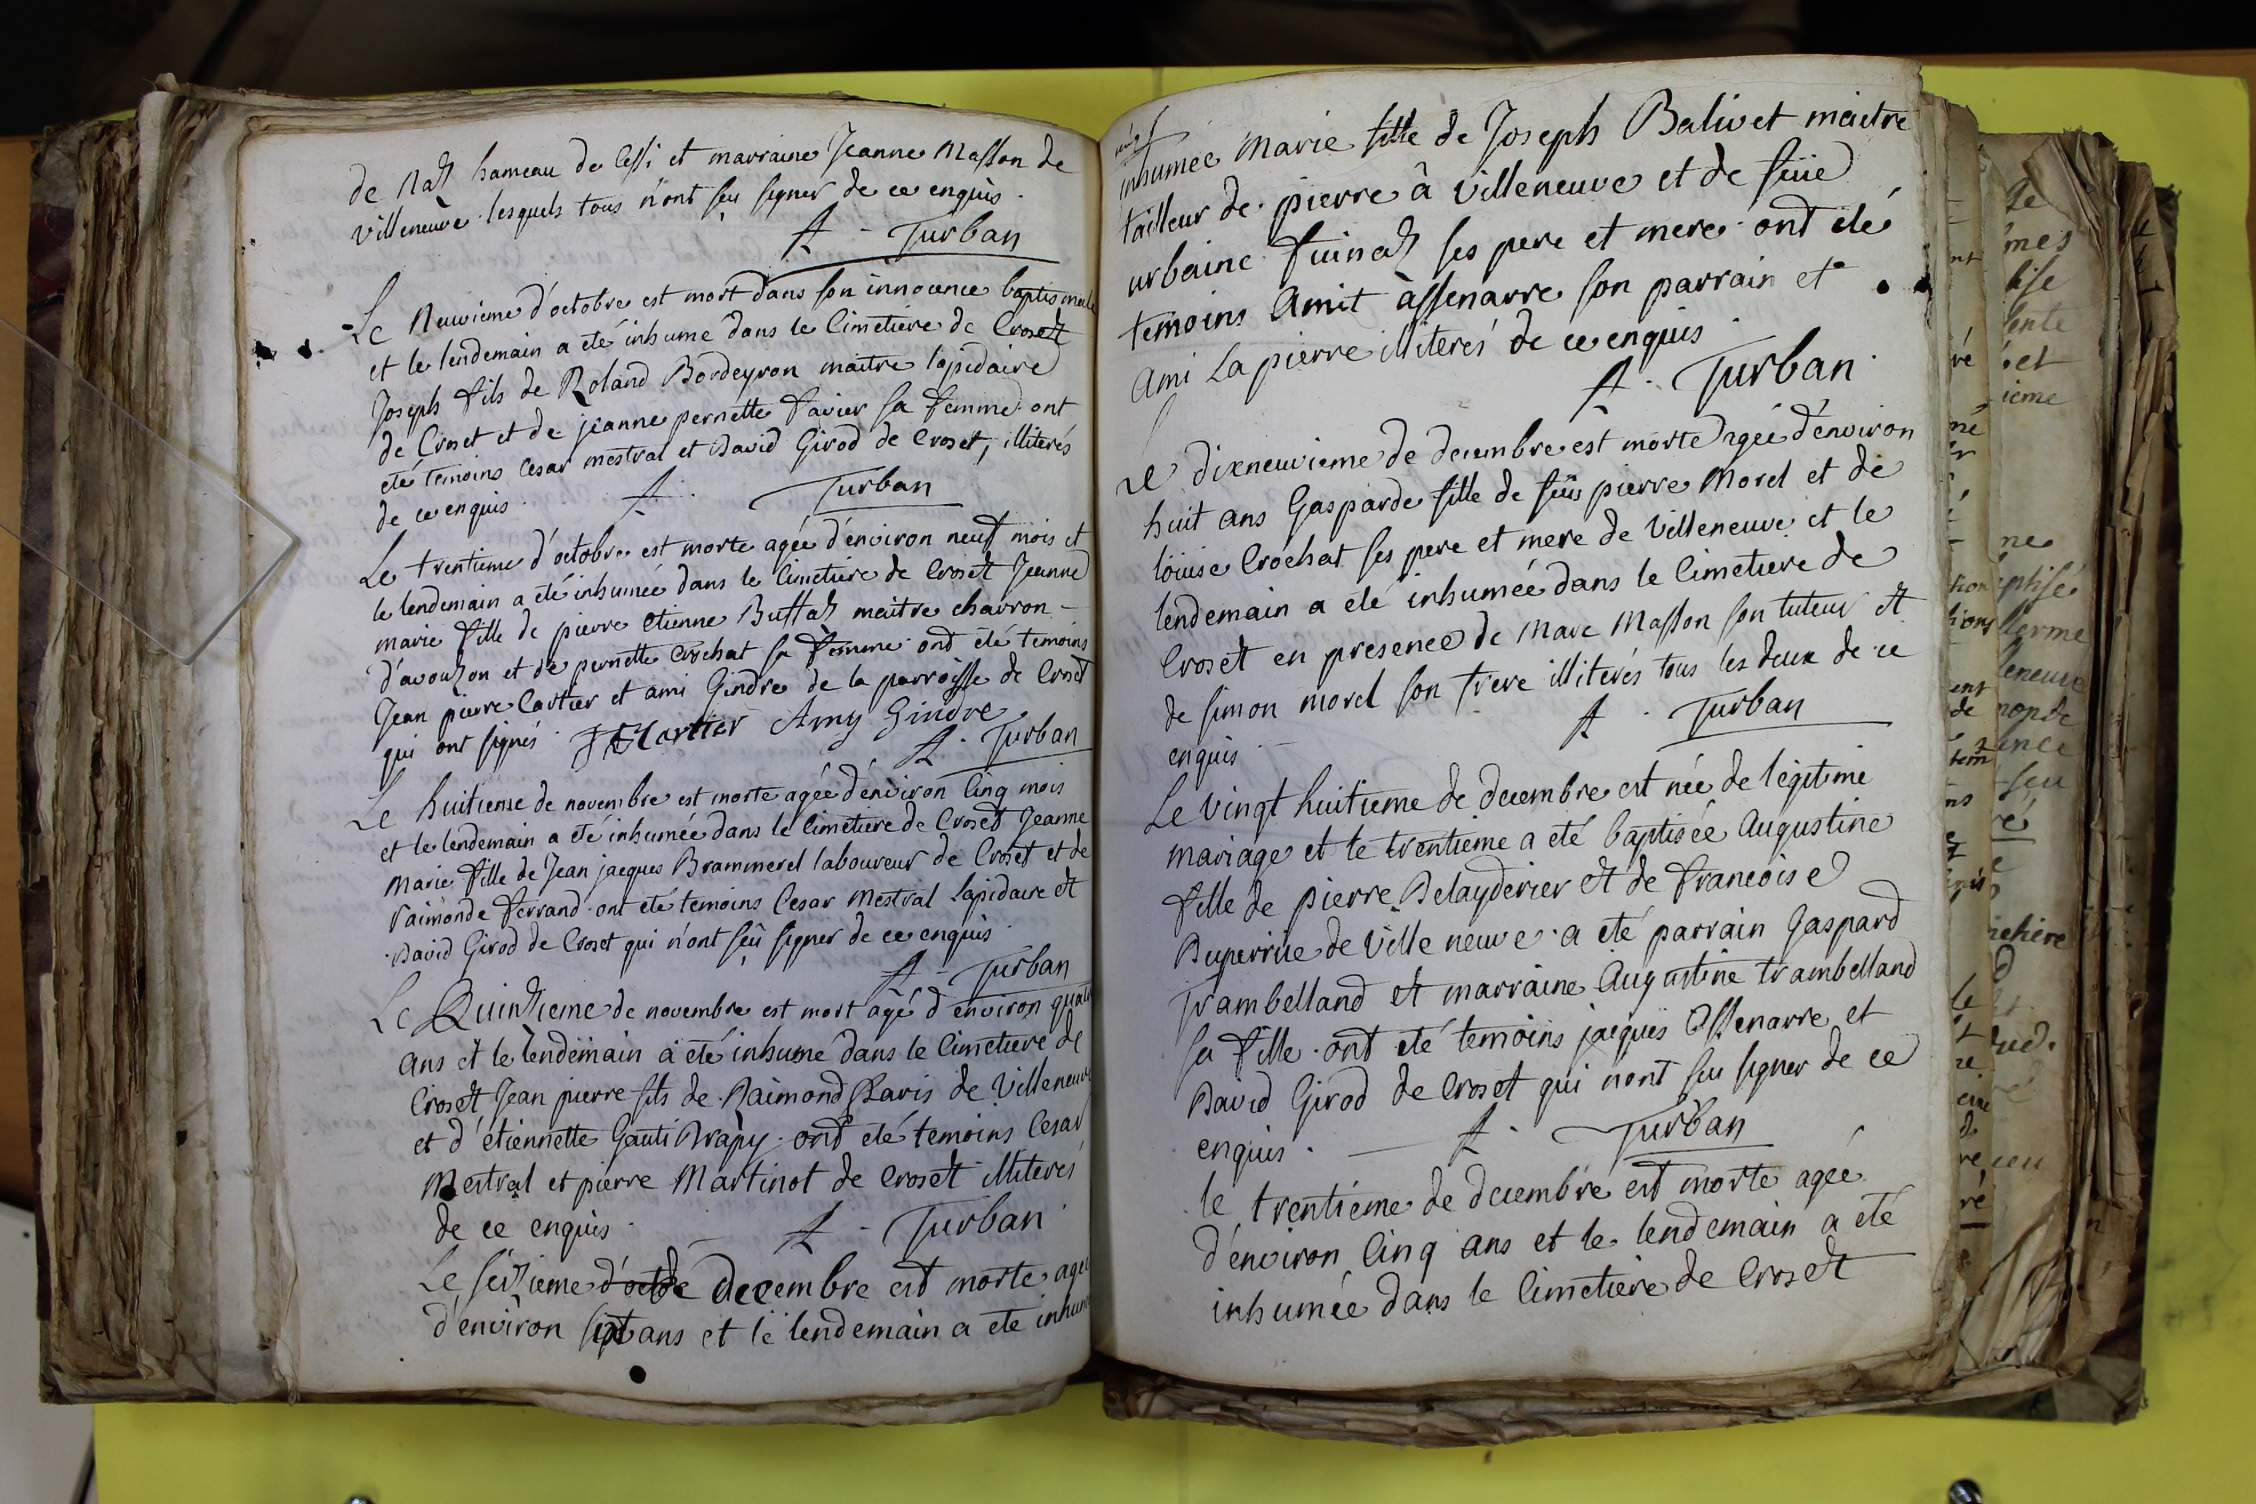 de Naz hameau de Cessi et marraine Jeanne Masson de
villeneuve lesquels tous n'ont seu signer de ce enquis.
A. Turban
Le Neuvieme d'octobre est mort dans son innocence baptismale
et le lendemain a eté inhume dans le Cimetiere de Croset
Joseph fils de Roland Bordeyron maitre lapidaire
de Croset et de jeanne pernette favier sa femme. ont
eté temoins Cesar mestral et David Girod de Croset, illiterés
de ce enquis.
A. Turban
Le trentieme d'octobre est morte agée d'environ neuf mois et
le lendemain a eté inhumée dans le Cimetiere de Croset Jeanne
marie fille de pierre etienne Buffaz maitre charron
d'avouzon et de pernette Crochat sa femme ont eté temoins
Jean pierre Cartier et ami Gindre de la parroisse de Croset
qui ont signés. Cartier Amy Gindre
A. Turban
Le huitieme de novembre est morte agée d'environ Cinq mois
et le lendemain a eté inhumée dans le Cimetiere de Croset Jeanne
Marie fille de Jean jacques Brammerel laboureur de Croset et de
raimonde ferrand. ont eté temoins Cesar Mestral lapidaire et
David Girod de Croset qui n'ont seu signer de ce enquis.
A. Turban
Le Quinzieme de novembre est mort agé d'environ quatre
ans et le lendemain a eté inhume dans le Cimetiere de
Croset Jean pierre fils de Raimond Ravis de Villeneuve
et d'etiennette Gauti ont eté temoins Cesar
Mestral et pierre Martinot de Croset illiterés
de ce enquis.
A. Turban
Le seizieme decembre est morte agée
d'environ sept ans et le lendemain a ete inhumé
inhumée Marie fille de Joseph Balivet maitre
tailleur de pierre à Villeneuve et de füe
urbaine fuinaz ses pere et mere. ont eté
temoins Amit assenarre son parrain et
Ami Lapierre illiterés de ce enquis.
A. Turban
Le dixneuvieme de decembre est morte agée d'environ
huit ans Gasparde fille de füs pierre Morel et de
loüise Crochat ses pere et mere de Villeneuve et le
lendemain a eté inhumée dans le Cimetiere de
Croset en presence de Marc Masson son tuteur et
de simon morel son frere illiterés tous les deux de ce
enquis
A. Turban
Le vingt huitieme de decembre est née de légitime
mariage et le trentieme a eté baptisée Augustine
fille de pierre Delayderier et de francoise
Duperrue de Ville neuve. a eté parrain Gaspard
Trambelland et marraine Augustine trambelland
sa fille. ont eté temoins jacques Assenarre et
David Girod de Croset qui nont seu signer de ce
enquis.
A. Turban
le trentiéme de decembre est morte agée
d'environ Cinq ans et le lendemain a eté
inhumée dans le Cimetiere de Croset